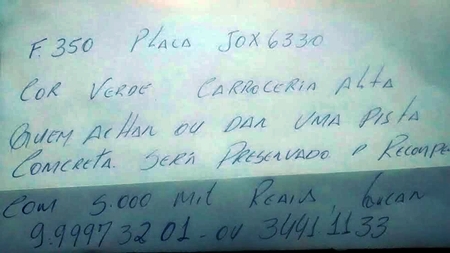 F.350 PLACA JOX6330
COR VERDE CARROCERIA ALTA
QUEM ACHAR OU DAR UMA PISTA
COMCRETA. SERÁ PRESERVADO e RECOMPE
COM 5.000 MIL REAIS,
9.99973201-OU 34411133